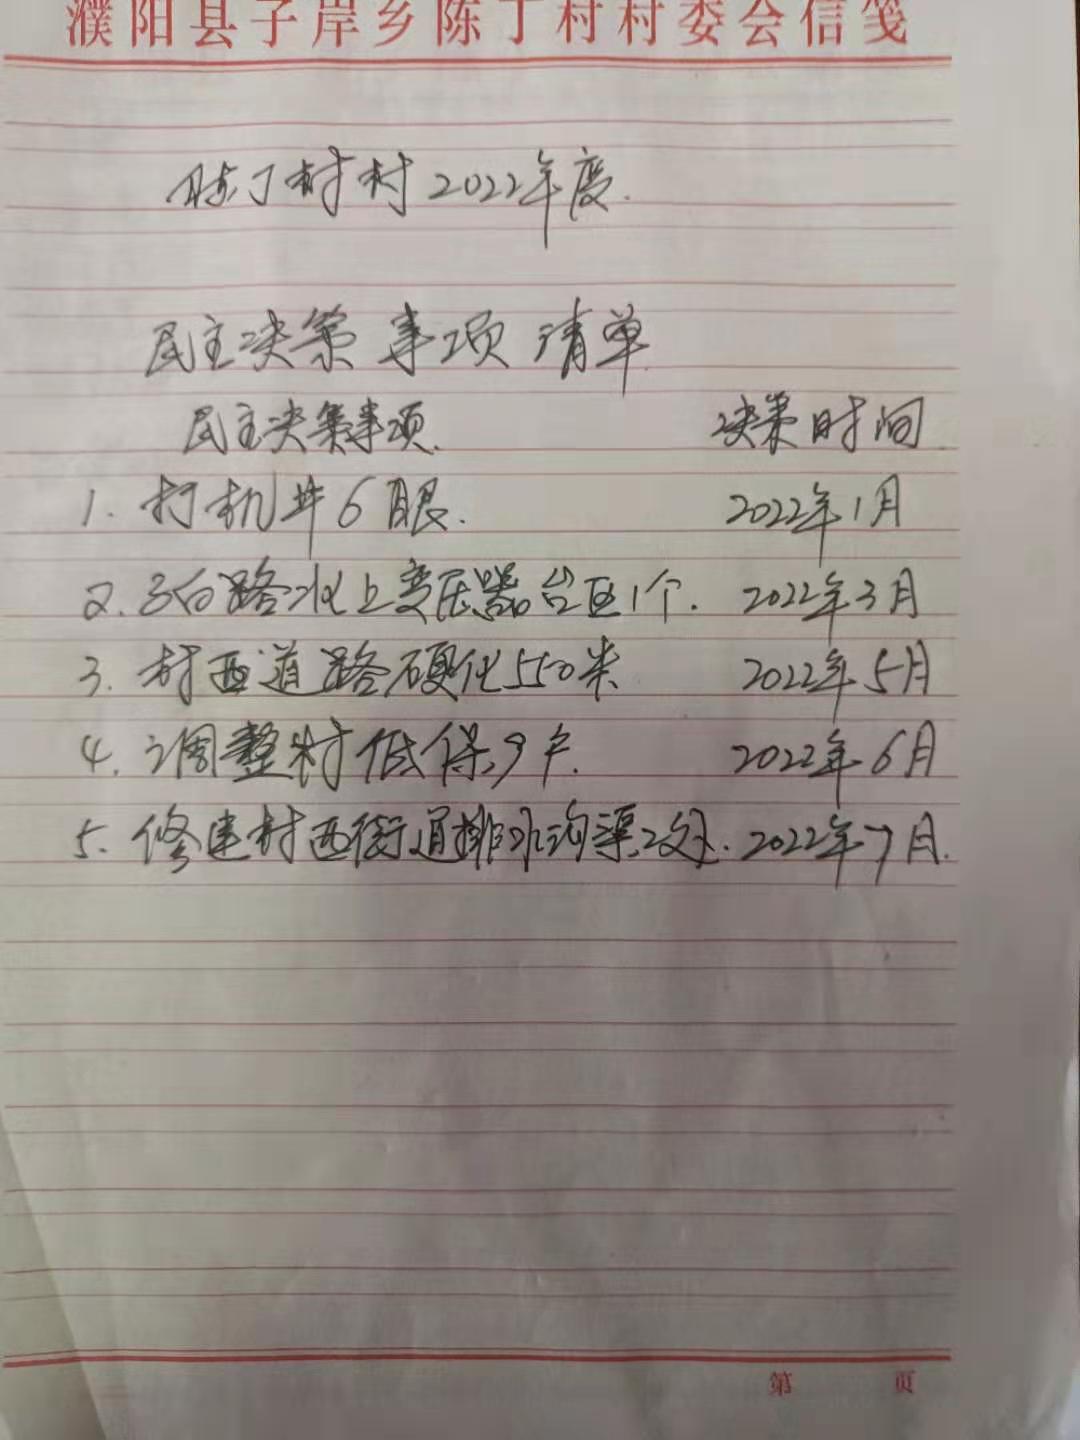 濮阳县子岸乡陈丁村村委会信笺
陈丁村村2022年度.
民主决策事项清单
民主决策事项 决策时间
1. 打机井6眼. 2022年1月
2. 路以上变压器台区1个. 2022年3月
3. 村西道路硬化550米 2022年5月
4. 调整村低保9户. 2022年6月
5. 修建村西街道排水沟渠2处. 2022年7月.
第 页